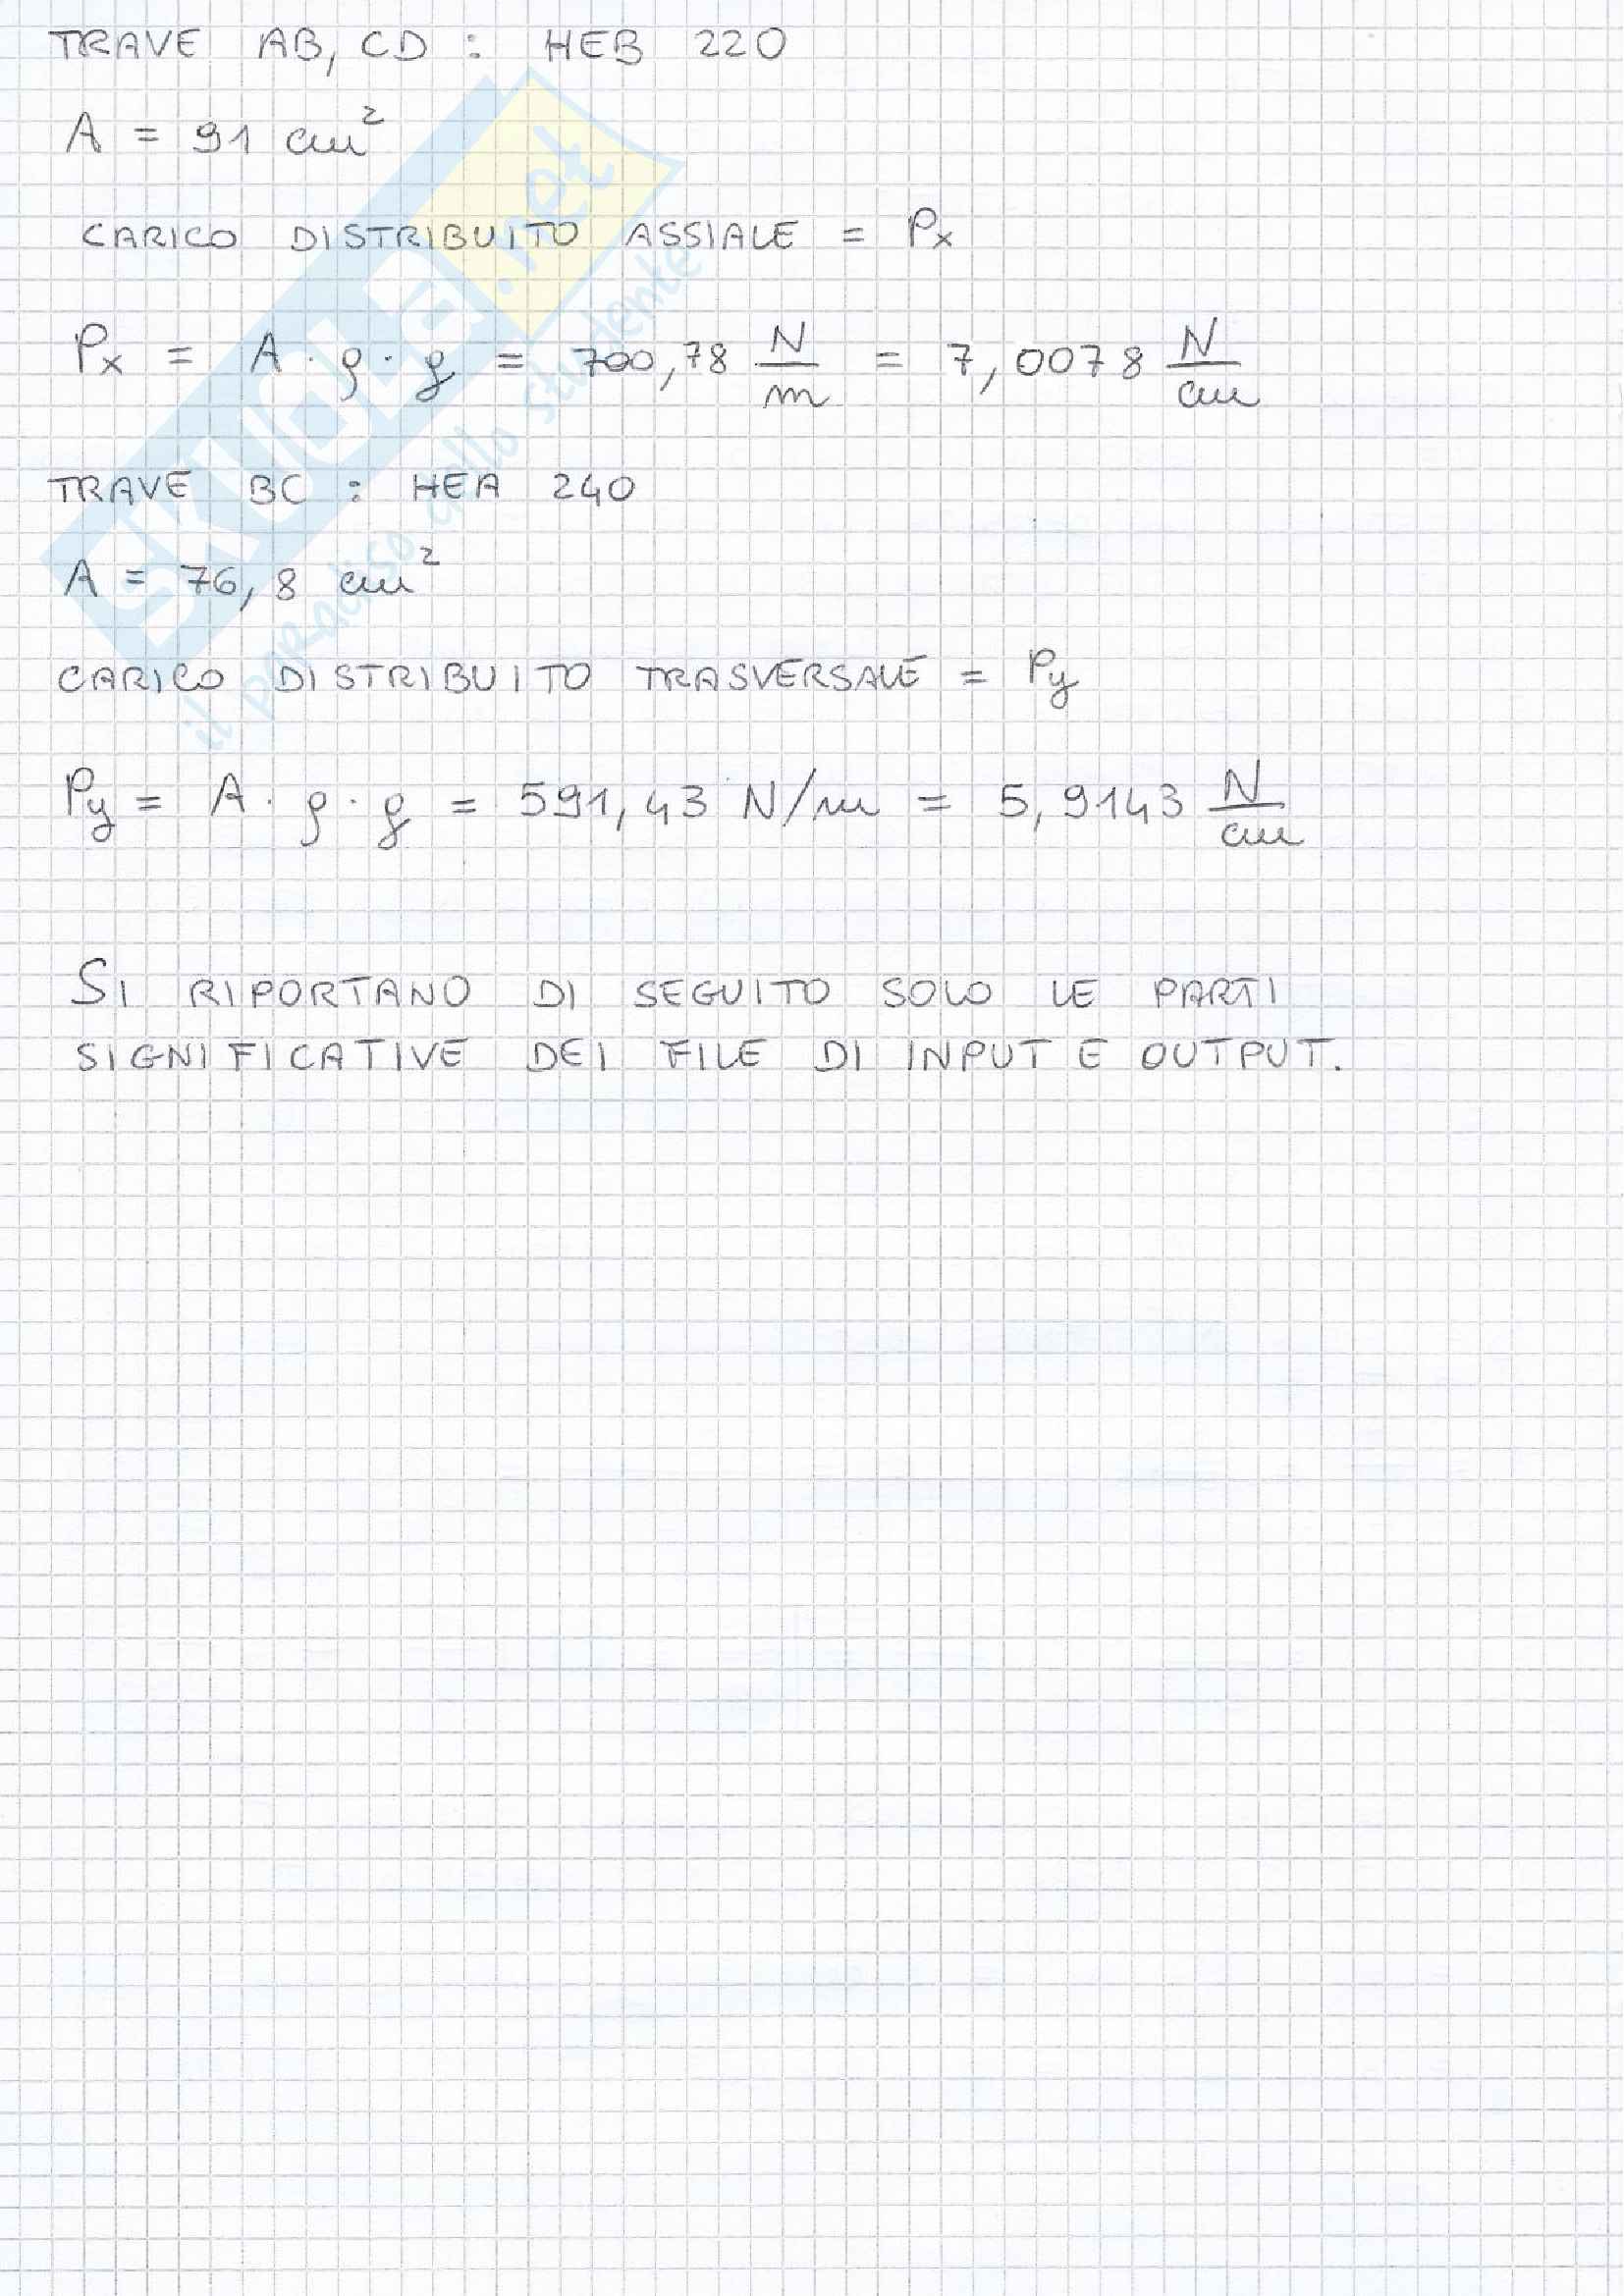 TRAVE AB, CD : HEB 220
A = 91 cm²
CARICO DISTRIBUITO ASSIALE = Px
Px = A · ρ · g = 700,78 N/m = 7,0078 N/cm
TRAVE BC : HEA 240
A = 76,8 cm²
CARICO DISTRIBUITO TRASVERSALE = Py
Py = A · ρ · g = 591,43 N/m = 5,9143 N/cm
SI RIPORTANO DI SEGUITO SOLO LE PARTI
SIGNIFICATIVE DEI FILE DI INPUT E OUTPUT.
SKUOLA.net
il paradiso dello studente